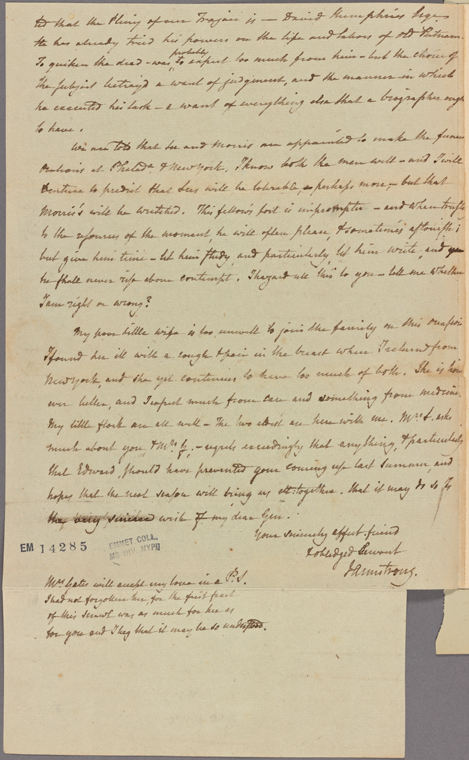 that the Pliny of our Trajan is — David Humphries Esqr.
He has already tried his powers on the life and labors of old Putnam.
probably
To quicken the dead — was, to expect too much from him — but the choice of
the subject betray'd a want of judgement, and the manner in which
he executed his task — a want of everything else that a biographer ought
to have.
We are told that Lee and Morris are appointed to make the funeral
orations at Philada. & New York. I know both the men well — and I will
venture to predict that Lees will be tolerable, perhaps more, — but that
Morris's will be wretched. This fellow's fort is impromptu — and when trusted
to the resources of the moment he will often please, & sometimes astonish;
but give him time — let him study, and particularly, let him write, and
he shall never rise above contempt. I hazard all this to you — tell me whether
I am right or wrong?
My poor little wife is too unwell to join the family on this occasion
I found her ill with a cough & pain in the breast when I returned from
New York, and she yet continues to have too much of both. She is how
ever better, and I expect much from care and something from medicine.
My little flock are all well — The two eldest are here with me. Mrs. A. asks
much about you, & Mrs. G. — regrets exceedingly that anything, & particularly
that Edward, should have prevented your coming up last summer, and
hopes that the next season will bring us all together. that it may do so is
the very sincere wish of my dear Gen.
Your sincerely affect. friend
& obledged Servant
J Armstrong.
EM 14285
EMMET COLL.
MS DIV. NYPL
Mrs. Gates will accept my love in a P.S.
I had not forgotten her, for the first part
of this was as much for her as
for you and I beg that it may be so understood.